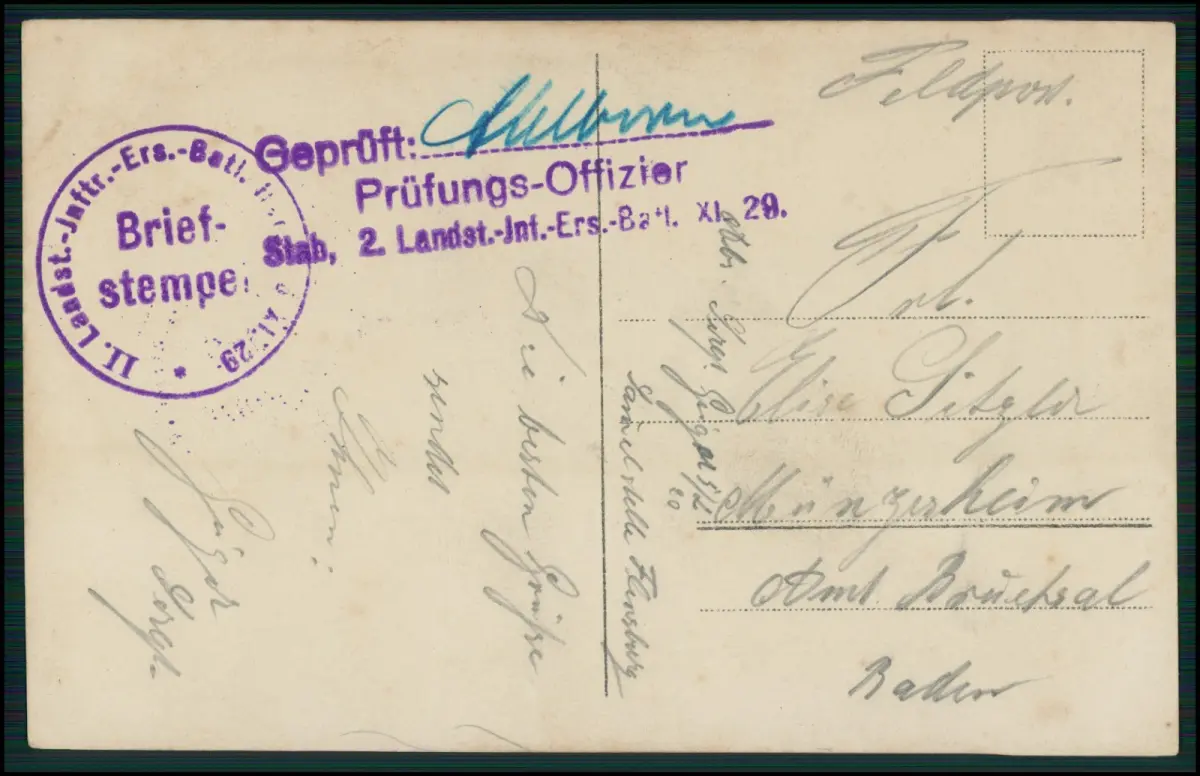 Feldpost.
Geprüft:
Prüfungs-Offizier
Stab, 2. Landst.-Inf.-Ers.-Batl. XI. 29.
II. Landst.-Inftr.-Ers.-Batl. XI. 29 *
Brief-
stempel
Frl.
Elise Sitzler
Münzesheim
Amt Bruchsal
Baden
Abs. Sergt. Geiger
Sammelstelle Flensburg
Die besten Grüße
sendet
Ihnen:
Geiger
Sergt.